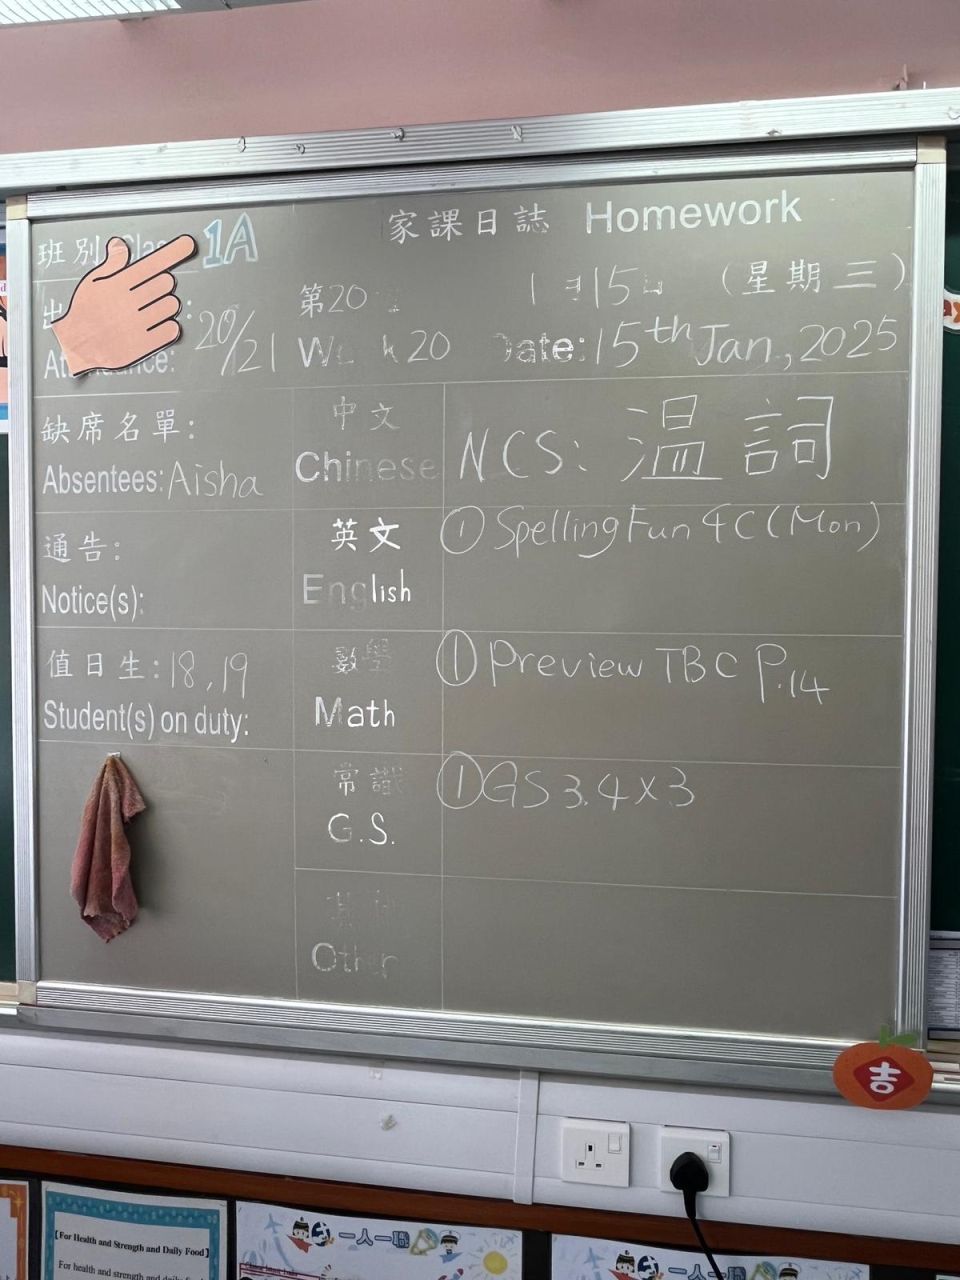 家課日誌 Homework
班別 Class 1A
第20
1 15 (星期三)
出
20/21
Attendance:
Week 20
Date: 15th Jan., 2025
缺席名單:
Absentees: Aisha
中文
Chinese
NCS: 溫詞
通告:
Notice(s):
英文
English
① Spelling Fun 4C (Mon)
值日生: 18, 19
Student(s) on duty:
數學
Math
① Preview TBC P.14
常識
G.S.
① GS 3.4 x 3
Other
吉
【For Health and Strength and Daily Food】
For health and strength and daily
一人一職